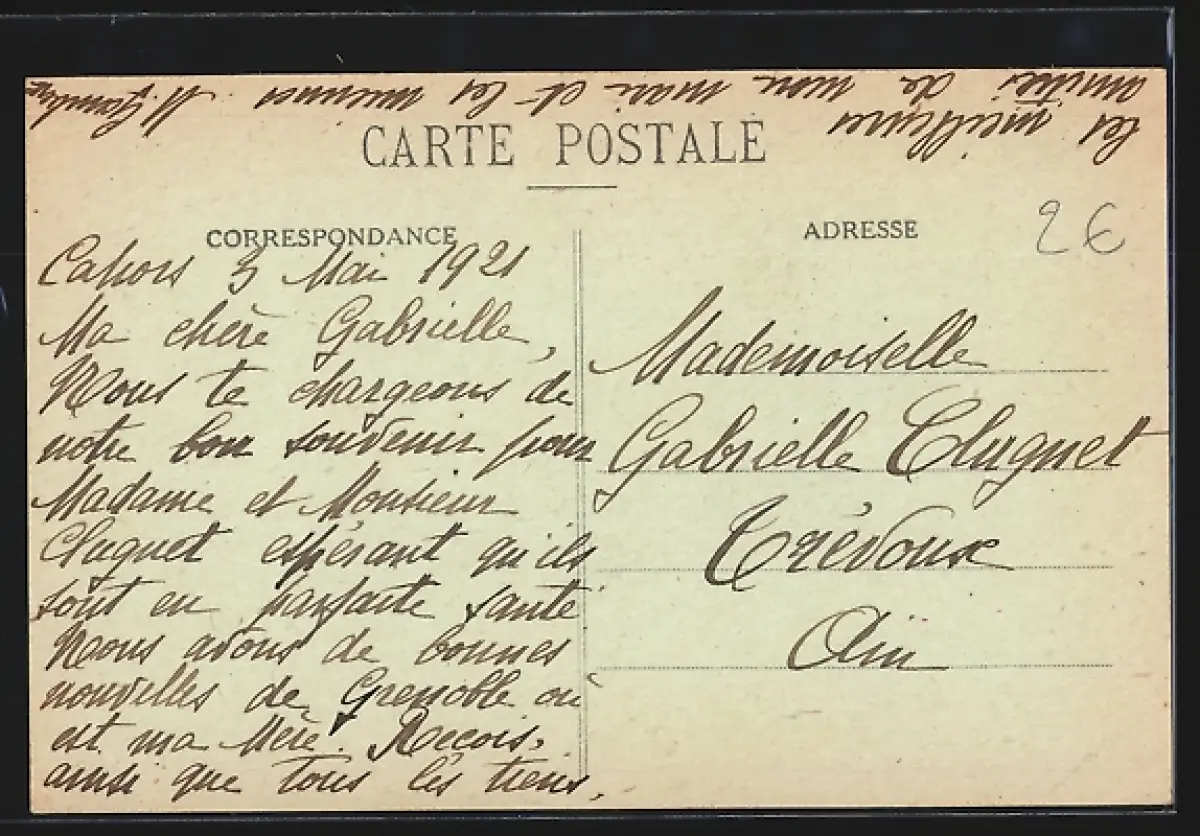 CARTE POSTALE
CORRESPONDANCE
Cahors 3 Mai 1921
Ma chère Gabrielle,
Nous te chargeons de
notre bon souvenir pour
Madame et Monsieur
Cluguet espérant qu'ils
sont en parfaite santé
Nous avons de bonnes
nouvelles de Grenoble où
est ma Mère. Reçois,
ainsi que tous les tiens,
les meilleures
amitiés de mon mari et les miennes.
ADRESSE
2€
Mademoiselle
Gabrielle Cluguet
Trévoux
Ain